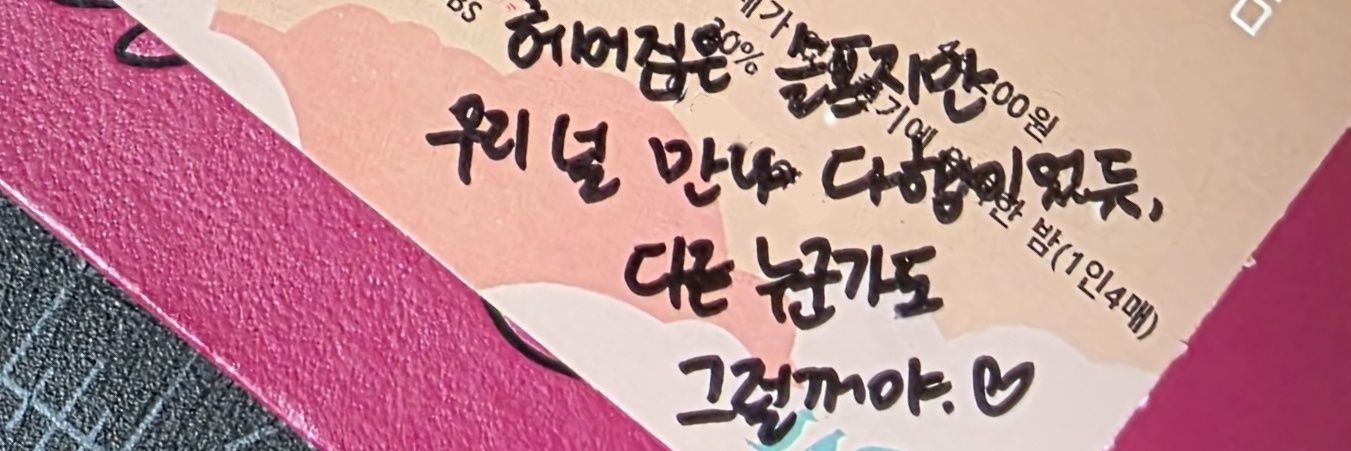 헤어짐은 슬프지만
우리 널 만나 다행이었듯,
다른 누군가도
그럴꺼야.
00원
밤(1인4매)